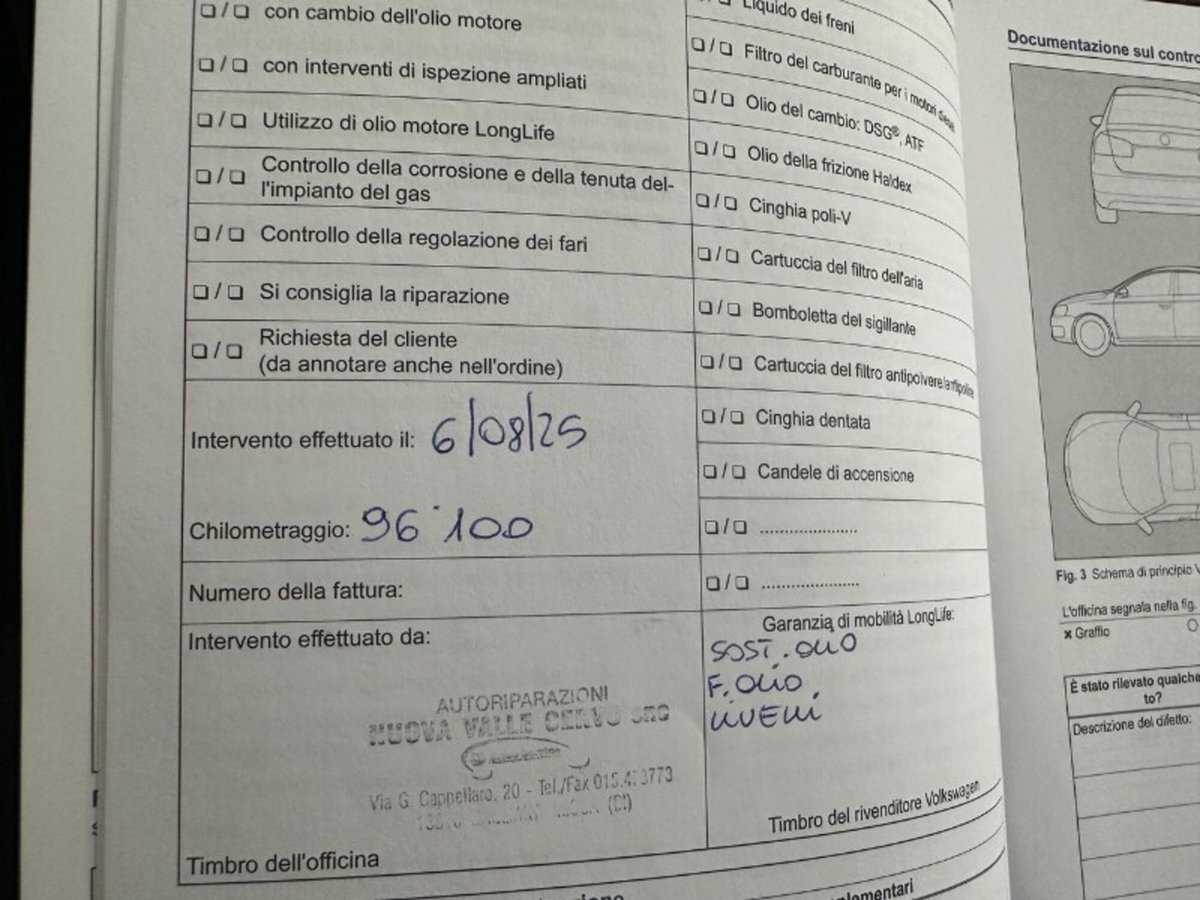 ❏ / ❏ con cambio dell'olio motore
❏ / ❏ con interventi di ispezione ampliati
❏ / ❏ Utilizzo di olio motore LongLife
❏ / ❏ Controllo della corrosione e della tenuta del-
l'impianto del gas
❏ / ❏ Controllo della regolazione dei fari
❏ / ❏ Si consiglia la riparazione
❏ / ❏ Richiesta del cliente
(da annotare anche nell'ordine)
Intervento effettuato il: 6/08/25
Chilometraggio: 96˙100
Numero della fattura:
Intervento effettuato da:
AUTORIPARAZIONI
NUOVA VALLE CERVO snc
Via G. Cappellaro, 20 - Tel./Fax
(BI)
Timbro dell'officina
❏ Liquido dei freni
❏ / ❏ Filtro del carburante per i motori diesel
❏ / ❏ Olio del cambio: DSG®, ATF
❏ / ❏ Olio della frizione Haldex
❏ / ❏ Cinghia poli-V
❏ / ❏ Cartuccia del filtro dell'aria
❏ / ❏ Bomboletta del sigillante
❏ / ❏ Cartuccia del filtro antipolvere/antipolline
❏ / ❏ Cinghia dentata
❏ / ❏ Candele di accensione
❏ / ❏ .....................
❏ / ❏ .....................
Garanzia di mobilità LongLife:
SOST. OLIO
F. OLIO,
LIVELLI
Timbro del rivenditore Volkswagen
lementari
Documentazione sul contro
Fig. 3 Schema di principio V
L'officina segnala nella fig.
✗ Graffio O
È stato rilevato qualche
to?
Descrizione del difetto: